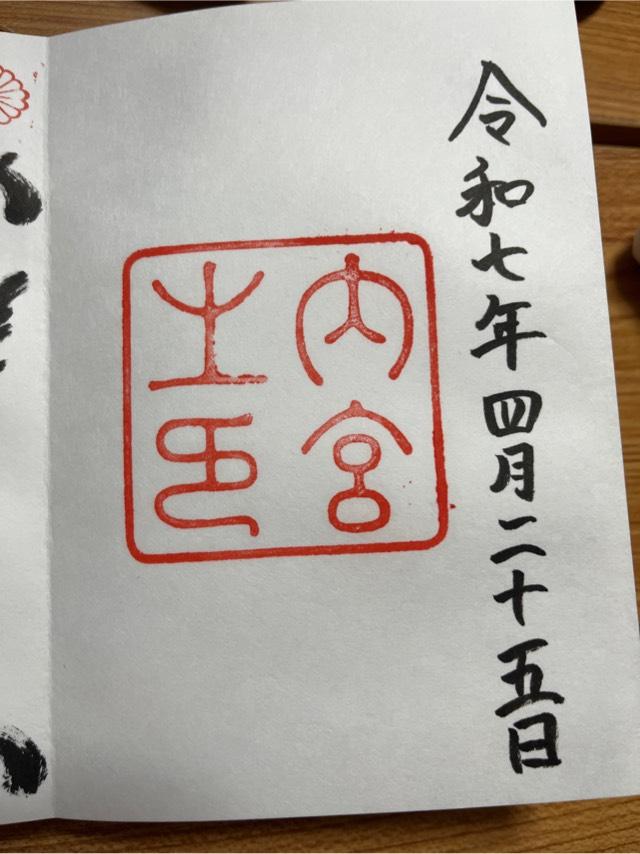 令和七年四月二十五日
内宮
之印